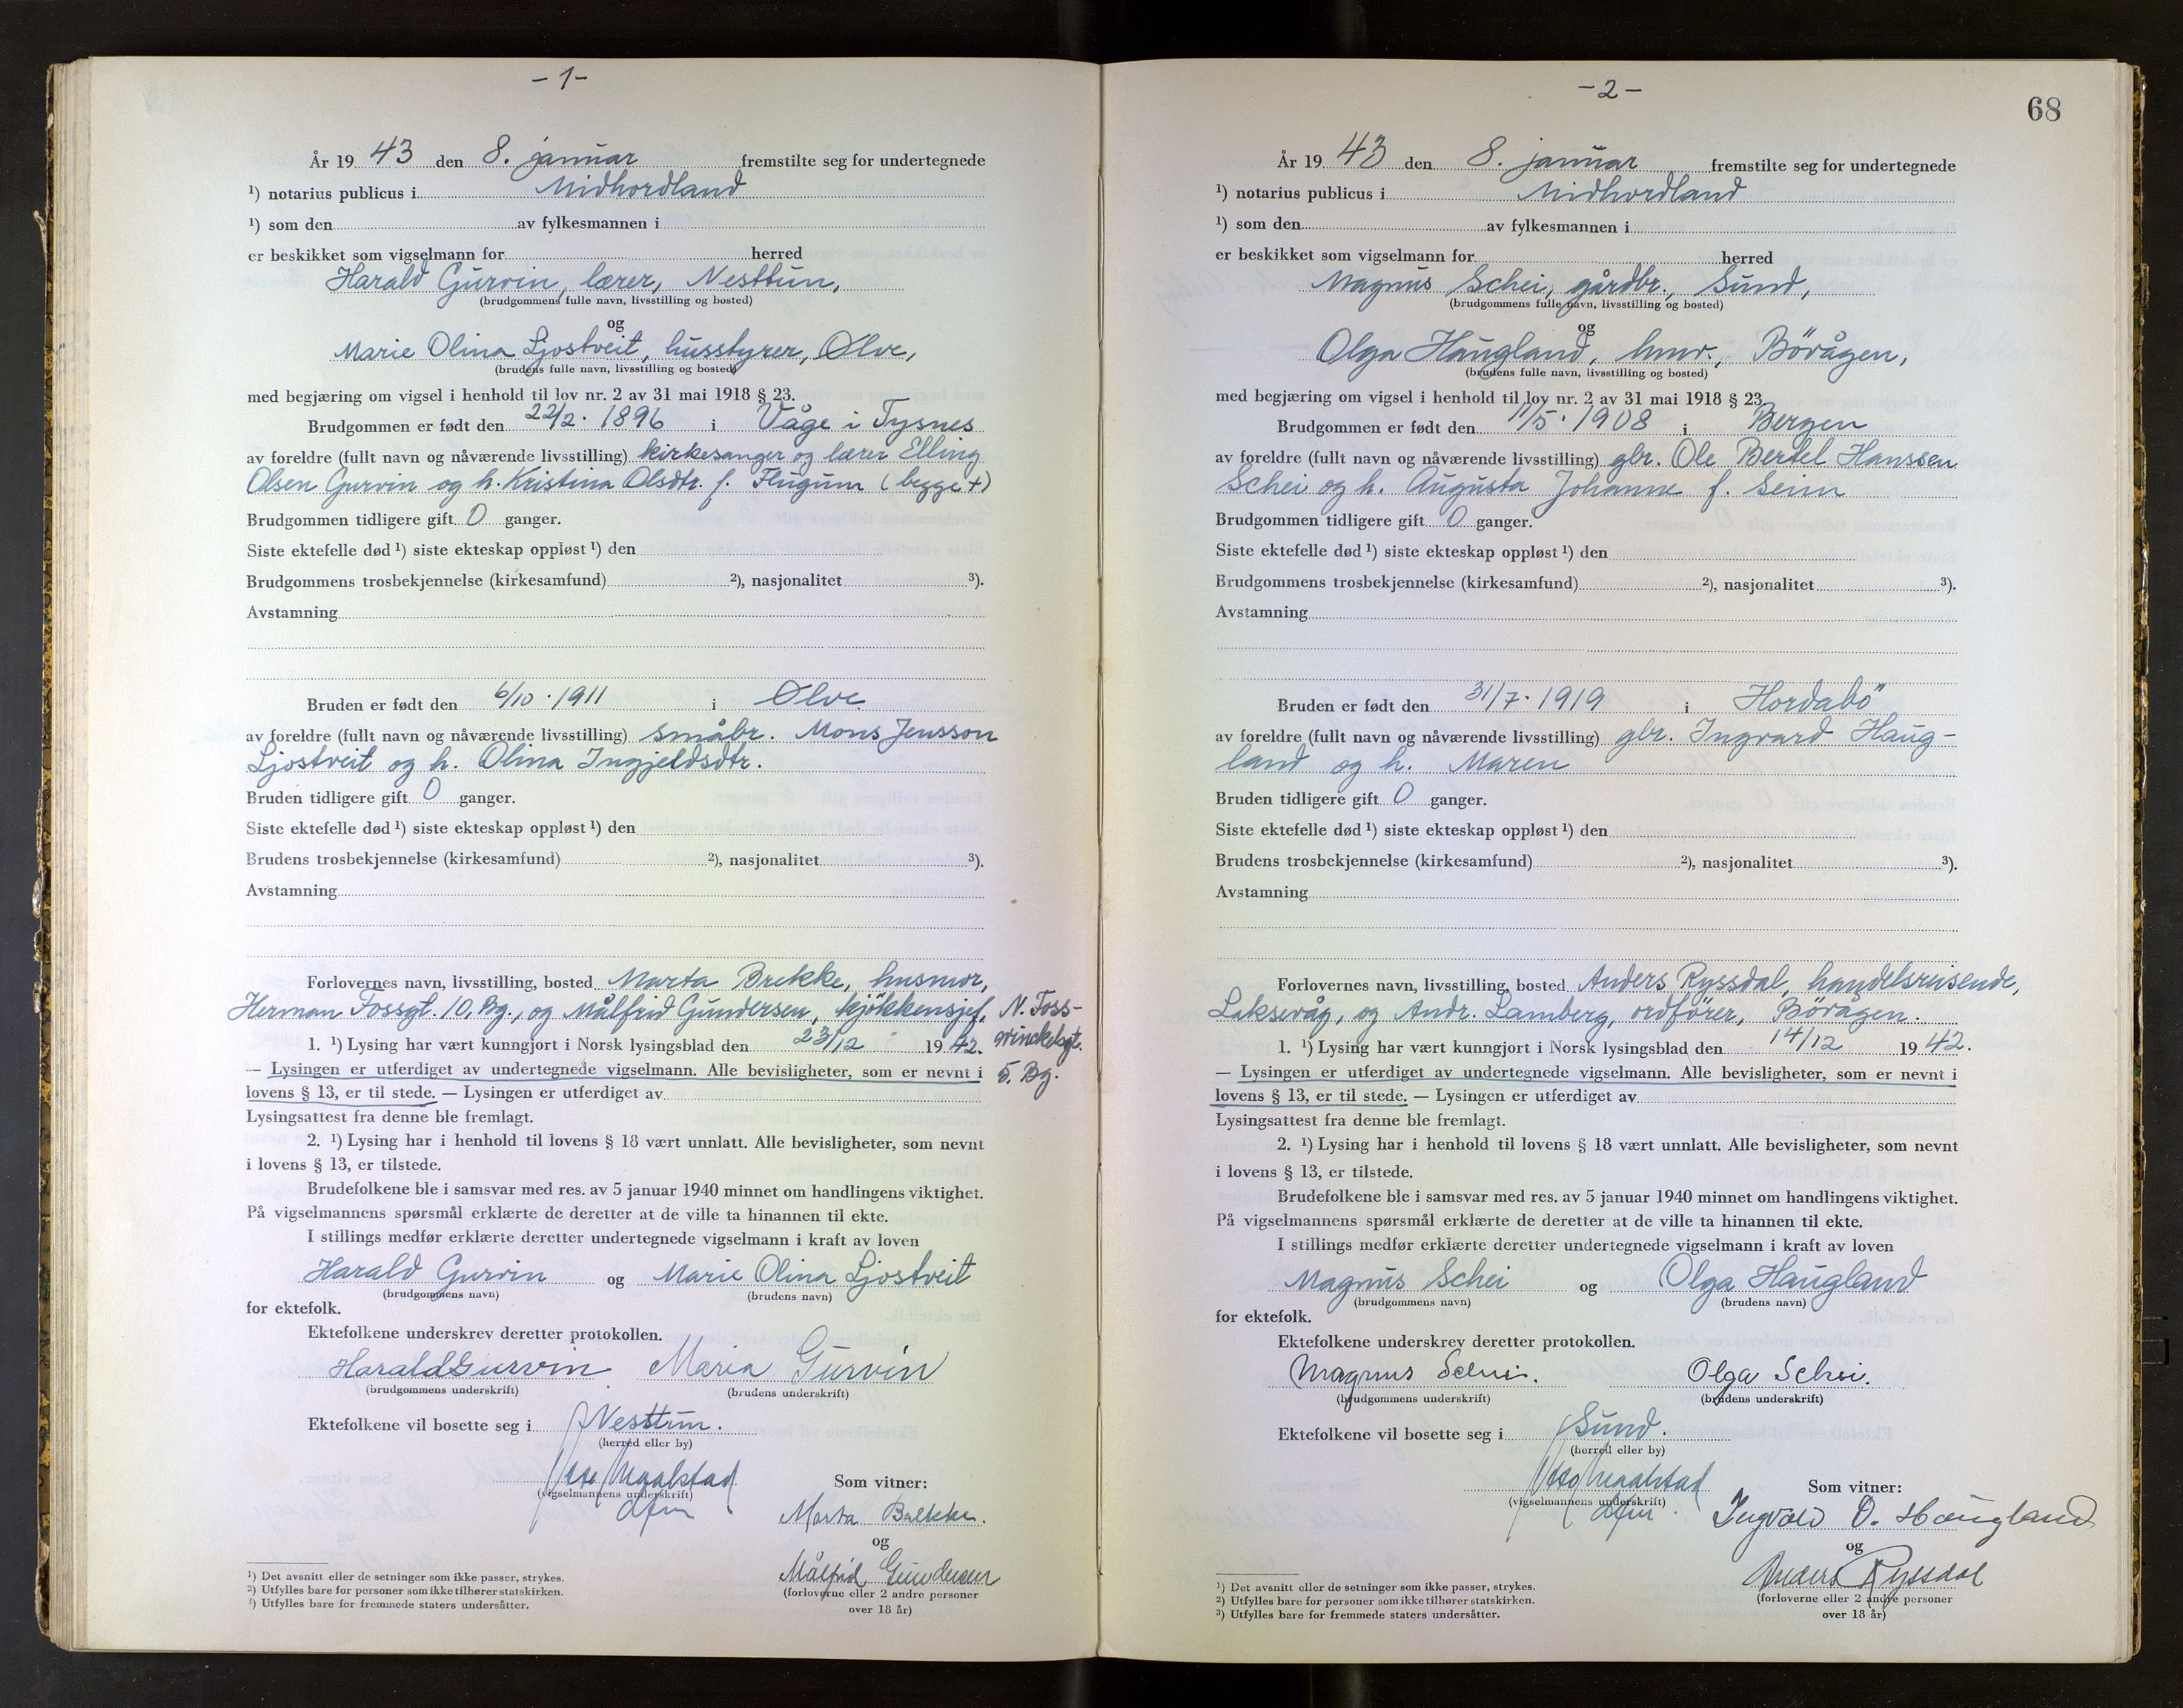 - 1 -
År 19 43 den 8. januar fremstilte seg for undertegnede
¹) notarius publicus i Midhordland
¹) som den av fylkesmannen i
er beskikket som vigselmann for herred
Harald Gurvin, lærer, Nesttun,
(brudgommens fulle navn, livsstilling og bosted)
og
Marie Olina Ljostveit, husstyrer, Ølve,
(brudens fulle navn, livsstilling og bosted)
med begjæring om vigsel i henhold til lov nr. 2 av 31 mai 1918 § 23.
Brudgommen er født den 22/2. 1896 i Våge i Tysnes
av foreldre (fullt navn og nåværende livsstilling) kirkesanger og lærer Elling
Olsen Gurvin og h. Kristina Olsdtr. f. Flugum (begge +)
Brudgommen tidligere gift 0 ganger.
Siste ektefelle død ¹) siste ekteskap oppløst ¹) den
Brudgommens trosbekjennelse (kirkesamfund) ²), nasjonalitet ³).
Avstamning
Bruden er født den 6/10. 1911 i Ølve
av foreldre (fullt navn og nåværende livsstilling) småbr. Mons Jensson
Ljostveit og h. Olina Ingjeldsdtr.
Bruden tidligere gift 0 ganger.
Siste ektefelle død ¹) siste ekteskap oppløst ¹) den
Brudens trosbekjennelse (kirkesamfund) ²), nasjonalitet ³).
Avstamning
Forlovernes navn, livsstilling, bosted Marta Brekke, husmor,
Herman Fossgt. 10, Bg., og Målfrid Gundersen, kjökkensjef, N. Foss-
1. ¹) Lysing har vært kunngjort i Norsk lysingsblad den 23/12 19 42. winckelsgt.
— Lysingen er utferdiget av undertegnede vigselmann. Alle bevisligheter, som er nevnt i 5. Bg.
lovens § 13, er til stede. — Lysingen er utferdiget av
Lysingsattest fra denne ble fremlagt.
2. ¹) Lysing har i henhold til lovens § 18 vært unnlatt. Alle bevisligheter, som nevnt
i lovens § 13, er tilstede.
Brudefolkene ble i samsvar med res. av 5 januar 1940 minnet om handlingens viktighet.
På vigselmannens spørsmål erklærte de deretter at de ville ta hinannen til ekte.
I stillings medfør erklærte deretter undertegnede vigselmann i kraft av loven
Harald Gurvin og Marie Olina Ljostveit
(brudgommens navn) (brudens navn)
for ektefolk.
Ektefolkene underskrev deretter protokollen.
Harald Gurvin Maria Gurvin
(brudgommens underskrift) (brudens underskrift)
Ektefolkene vil bosette seg i Nesttun.
(herred eller by)
Maalstad Som vitner:
(vigselmannens underskrift)
Marta Brekke.
og
Målfrid Gundersen
(forloverne eller 2 andre personer
over 18 år)
¹) Det avsnitt eller de setninger som ikke passer, strykes.
²) Utfylles bare for personer som ikke tilhører statskirken.
³) Utfylles bare for fremmede staters undersåtter.
- 2 -
68
År 19 43 den 8. januar fremstilte seg for undertegnede
¹) notarius publicus i Midhordland
¹) som den av fylkesmannen i
er beskikket som vigselmann for herred
Magnus Schei, gårdbr., Sund,
(brudgommens fulle navn, livsstilling og bosted)
og
Olga Haugland, hmr., Börågen,
(brudens fulle navn, livsstilling og bosted)
med begjæring om vigsel i henhold til lov nr. 2 av 31 mai 1918 § 23
Brudgommen er født den 11/5. 1908 i Bergen
av foreldre (fullt navn og nåværende livsstilling) gbr. Ole Bertel Hanssen
Schei og h. Augusta Johanne f. Seim
Brudgommen tidligere gift 0 ganger.
Siste ektefelle død ¹) siste ekteskap oppløst ¹) den
Brudgommens trosbekjennelse (kirkesamfund) ²), nasjonalitet ³).
Avstamning
Bruden er født den 31/7. 1919 i Hordabö
av foreldre (fullt navn og nåværende livsstilling) gbr. Ingvard Haug-
land og h. Maren
Bruden tidligere gift 0 ganger.
Siste ektefelle død ¹) siste ekteskap oppløst ¹) den
Brudens trosbekjennelse (kirkesamfund) ²), nasjonalitet ³).
Avstamning
Forlovernes navn, livsstilling, bosted Anders Ryssdal, handelsreisende,
Laksevåg, og Andr. Lamberg, ordförer, Börågen.
1. ¹) Lysing har vært kunngjort i Norsk lysingsblad den 14/12 19 42.
— Lysingen er utferdiget av undertegnede vigselmann. Alle bevisligheter, som er nevnt i
lovens § 13, er til stede. — Lysingen er utferdiget av
Lysingsattest fra denne ble fremlagt.
2. ¹) Lysing har i henhold til lovens § 18 vært unnlatt. Alle bevisligheter, som nevnt
i lovens § 13, er tilstede.
Brudefolkene ble i samsvar med res. av 5 januar 1940 minnet om handlingens viktighet.
På vigselmannens spørsmål erklærte de deretter at de ville ta hinannen til ekte.
I stillings medfør erklærte deretter undertegnede vigselmann i kraft av loven
Magnus Schei og Olga Haugland
(brudgommens navn) (brudens navn)
for ektefolk.
Ektefolkene underskrev deretter protokollen.
Magnus Schei. Olga Schei.
(brudgommens underskrift) (brudens underskrift)
Ektefolkene vil bosette seg i Sund.
(herred eller by)
Maalstad Som vitner:
(vigselmannens underskrift)
Ingvald O. Haugland
og
Anders Ryssdal
(forloverne eller 2 andre personer
over 18 år)
¹) Det avsnitt eller de setninger som ikke passer, strykes.
²) Utfylles bare for personer som ikke tilhører statskirken.
³) Utfylles bare for fremmede staters undersåtter.